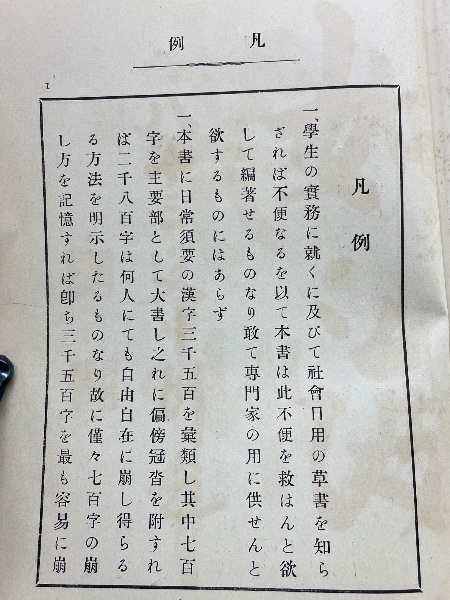 凡例
1
凡例
一、學生の實務に就くに及びて社會日用の草書を知ら
ざれば不便なるを以て本書は此不便を救はんと欲
して編著せるものなり敢て專門家の用に供せんと
欲するものにはあらず
一、本書に日常須要の漢字三千五百を彙類し其中七百
字を主要部として大書し之れに偏傍冠沓を附すれ
ば二千八百字は何人にても自由自在に崩し得らる
る方法を明示したるものなり故に僅々七百字の崩
し方を記憶すれば卽ち三千五百字を最も容易に崩